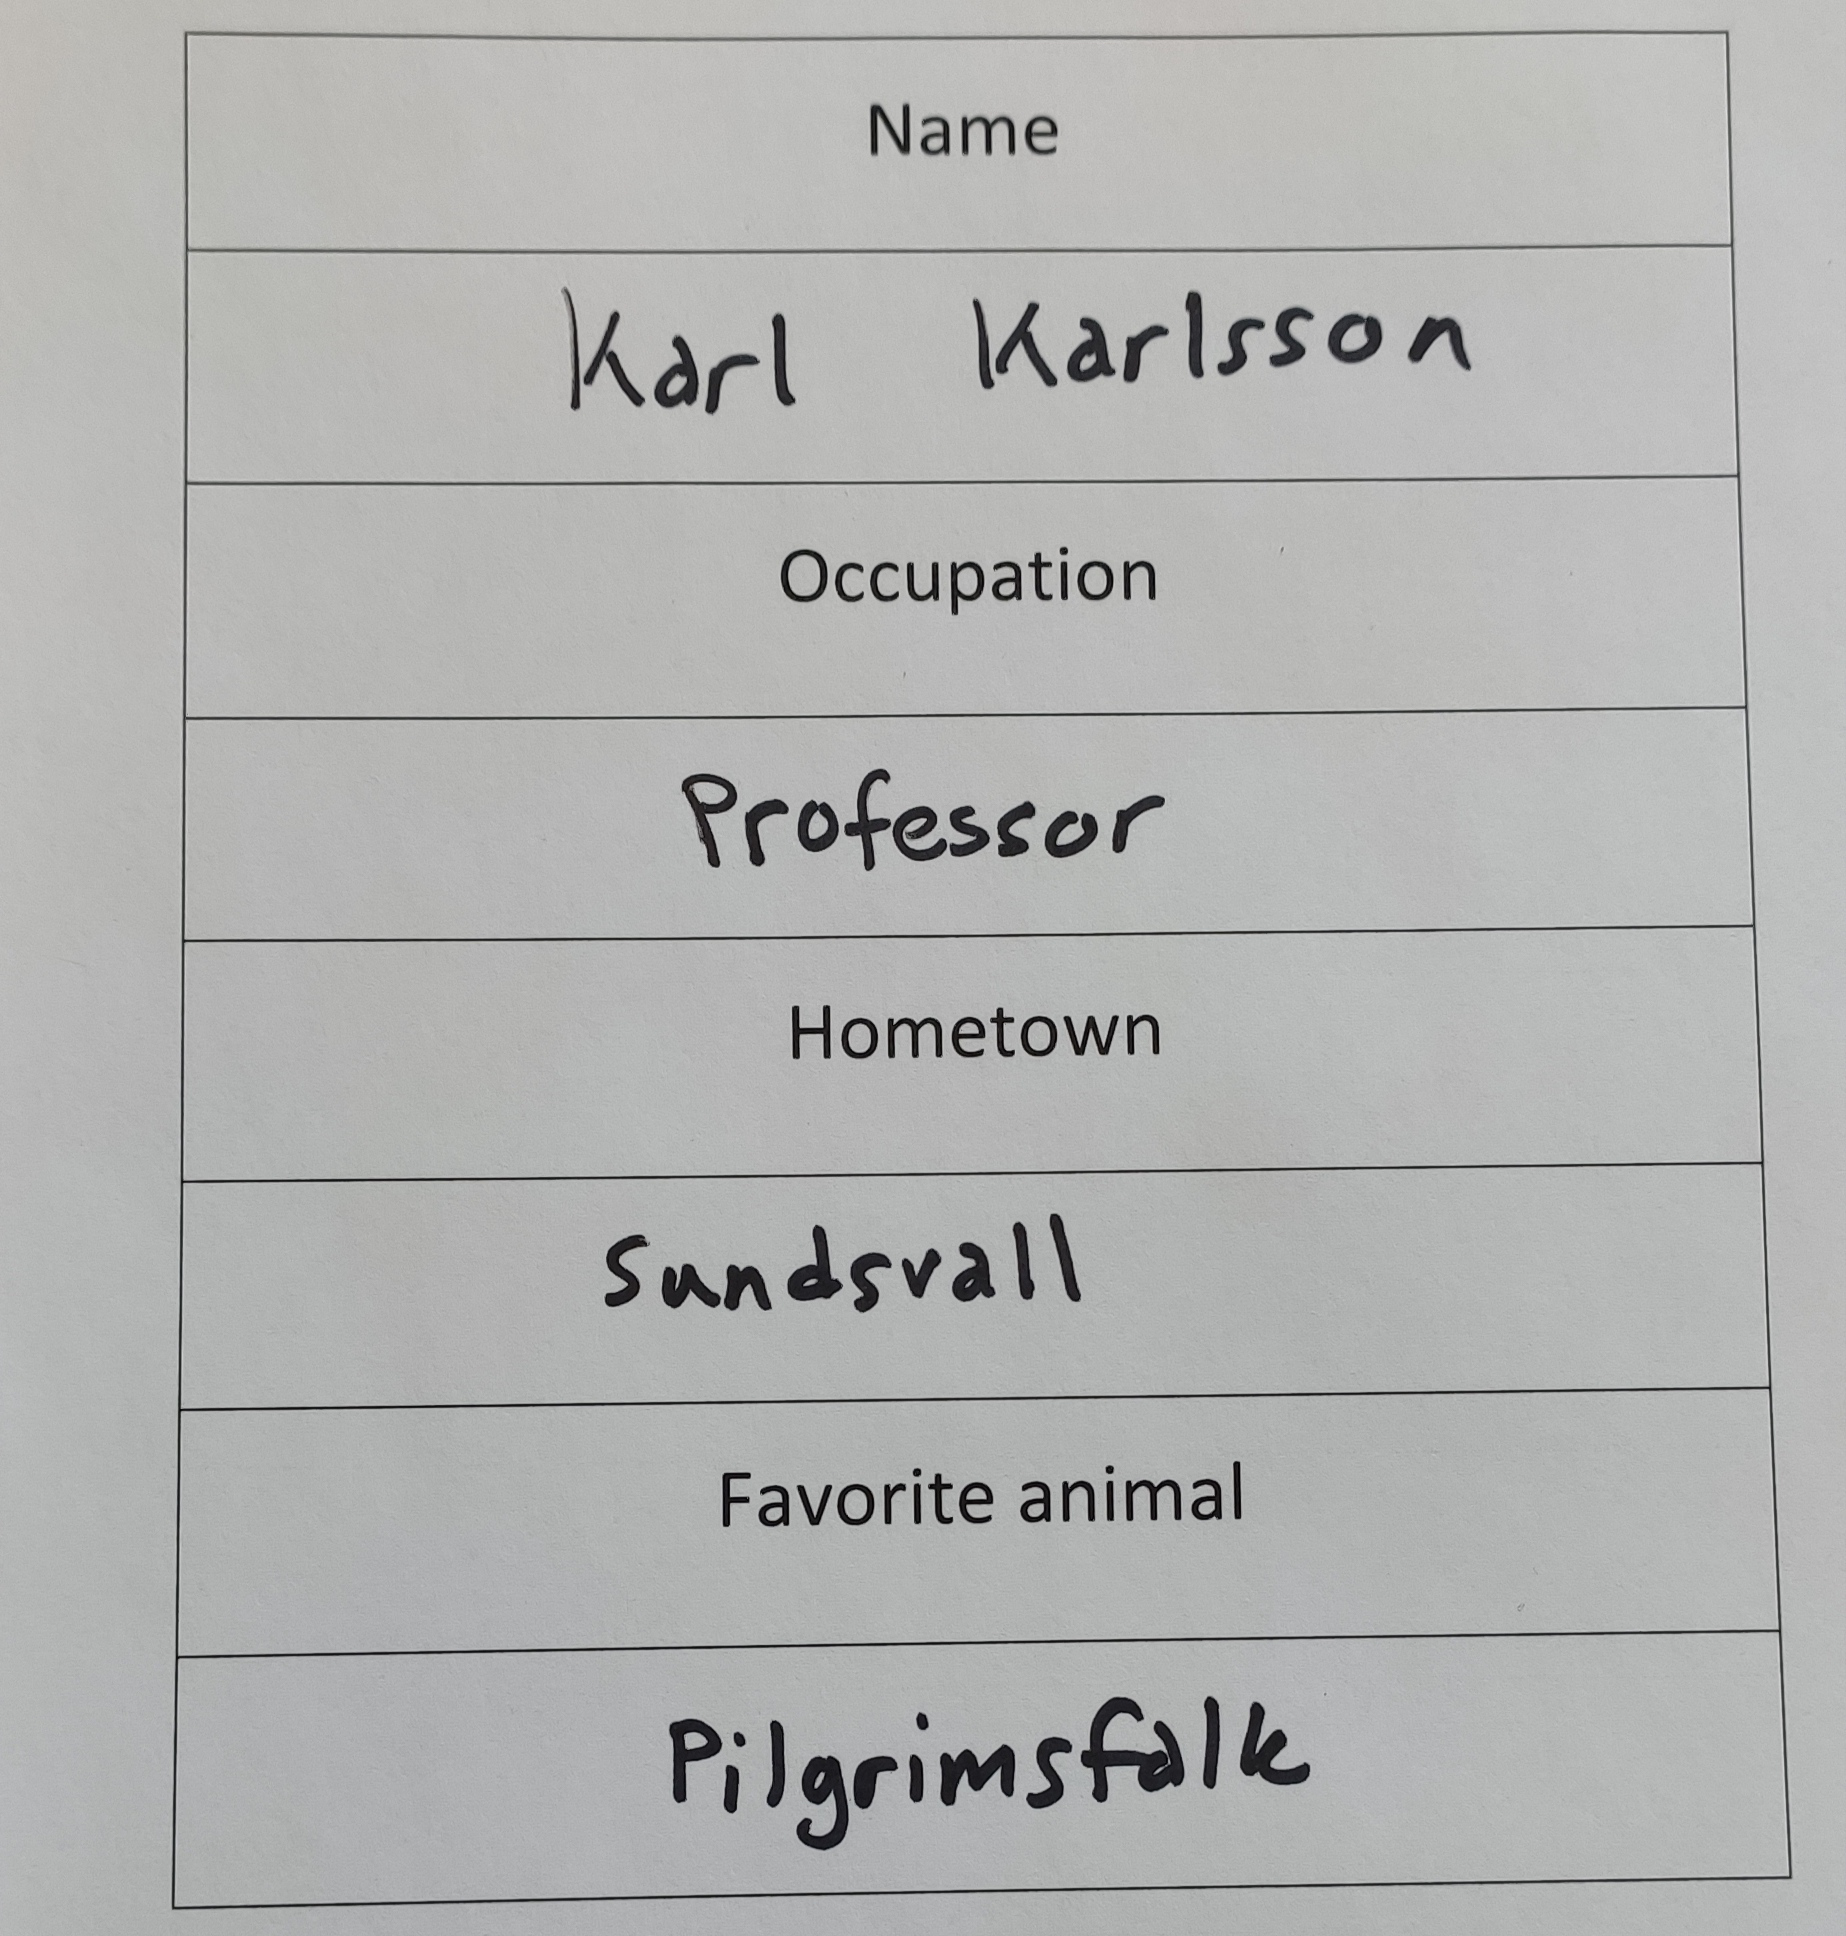 Name
Karl Karlsson
Occupation
Professor
Hometown
Sundsvall
Favorite animal
Pilgrimsfalk